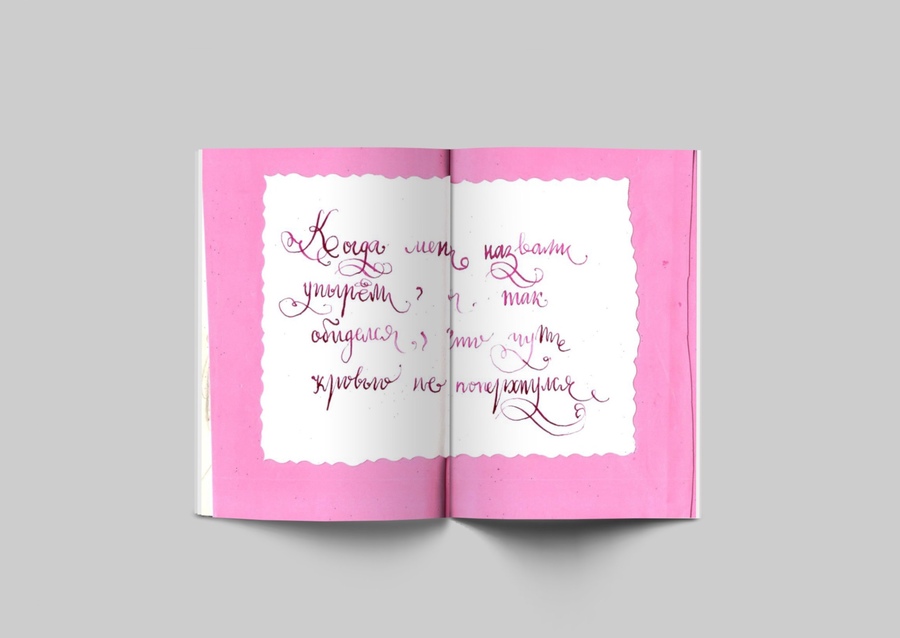 Когда меня назвали
упырём, я так
обиделся, что чуть
кровью не поперхнулся